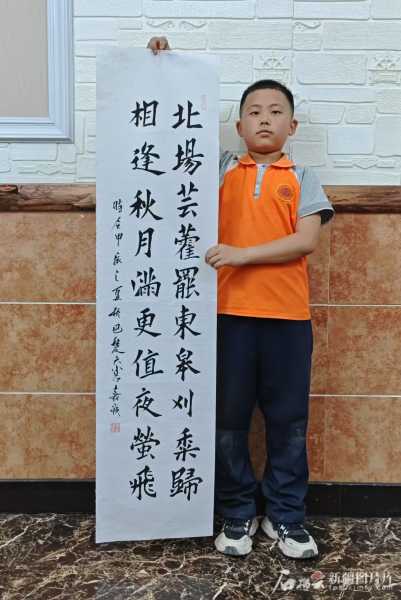 北場芸藿罷東皋刈黍歸
相逢秋月滿更值夜螢飛
時在甲辰之夏於巴楚
石榴云 新疆图片库